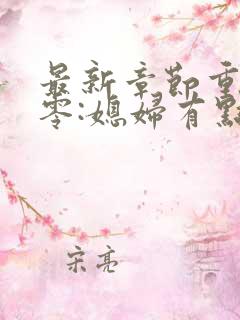 最新章節重
零:媳婦有點
宋亮